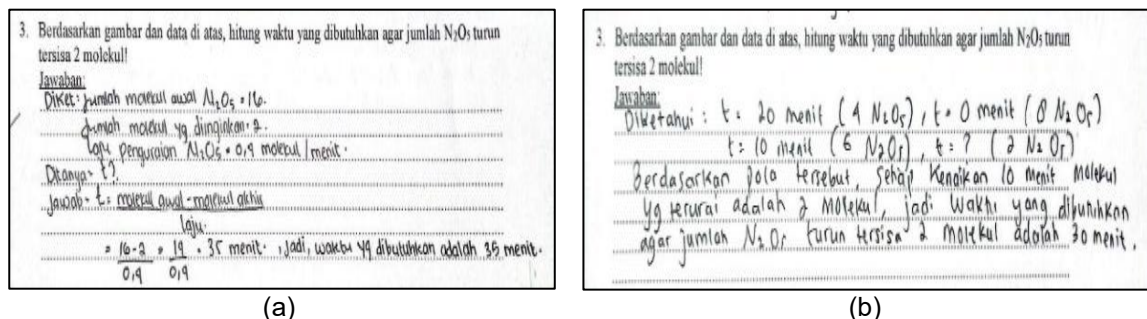 3. Berdasarkan gambar dan data di atas, hitung waktu yang dibutuhkan agar jumlah N₂O₅ turun
tersisa 2 molekul!
Jawaban:
Diket: Jumlah molekul awal N₂O₅ = 16.
Jumlah molekul yg diinginkan = 2.
Laju Penguraian N₂O₅ = 0,4 molekul / menit.
Ditanya = t?
Jawab = t = molekul awal - molekul akhir
laju.
= 16-2 = 14 = 35 menit. , Jadi, waktu yg dibutuhkan adalah 35 menit.
0,4 0,4
(a)
3. Berdasarkan gambar dan data di atas, hitung waktu yang dibutuhkan agar jumlah N₂O₅ turun
tersisa 2 molekul!
Jawaban:
Diketahui : t = 20 menit (4 N₂O₅) , t = 0 menit (8 N₂O₅)
t = 10 menit (6 N₂O₅) , t = ? (2 N₂O₅)
Berdasarkan pola tersebut, setiap kenaikan 10 menit molekul
yg terurai adalah 2 molekul, jadi waktu yang dibutuhkan
agar jumlah N₂O₅ turun tersisa 2 molekul adalah 30 menit.
(b)